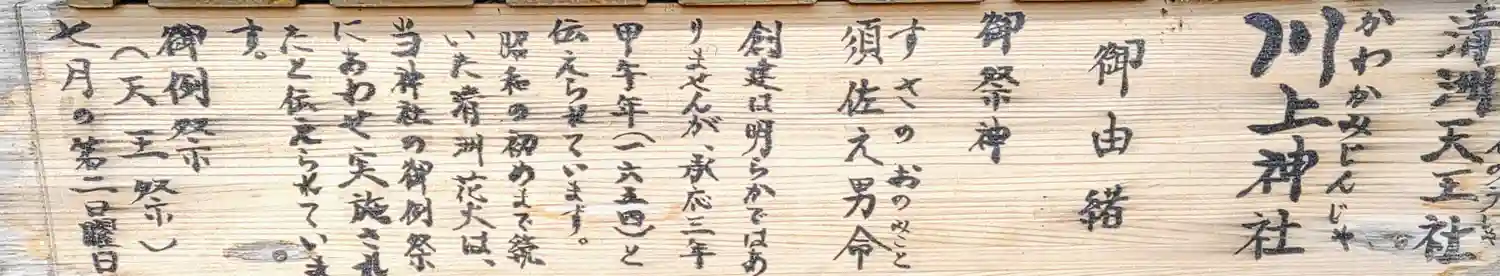 清洲天王社
かわかみじんじゃ
川上神社
御由緒
御祭神
すさのおのみこと
須佐之男命
創建は明らかではあ
りませんが、承応三年
甲午年(一六五四)と
伝えられています。
昭和の初めまで続
いた清洲花火は、
当神社の御例祭
にあわせ実施され
たと伝えられていま
す。
御例祭
(天王祭)
七月の第二日曜日